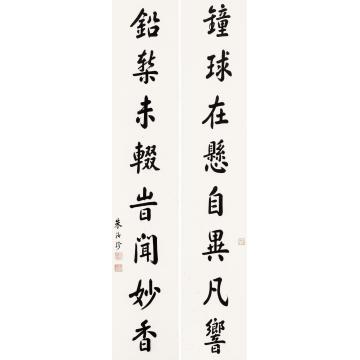 鐘球在懸自異凡響
鉛槧未輟時聞妙香
朱汝珍